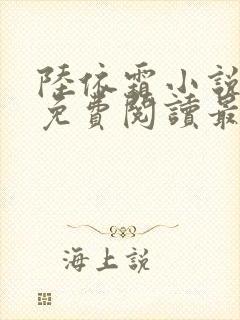 陸依霜小說
免費閱讀最
海上說